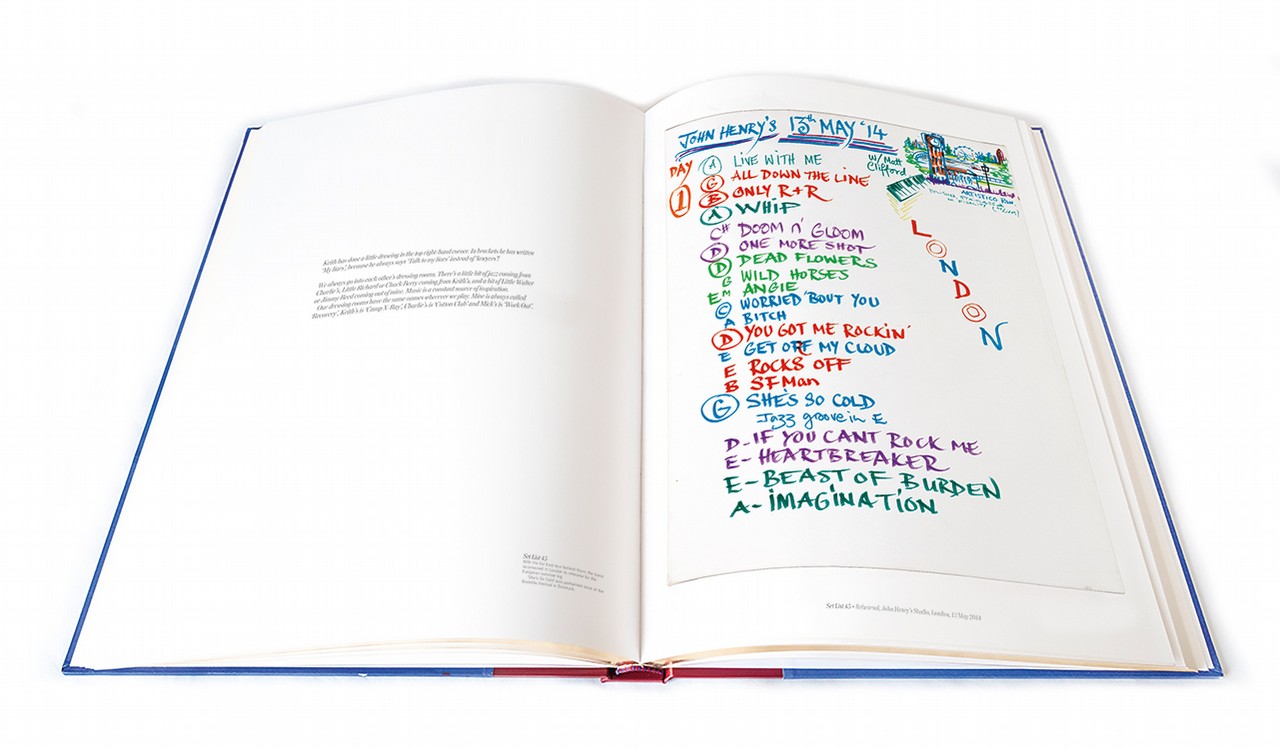 Keith has done a little drawing in the top right-hand corner. In brackets he has written
'My liars', because he always says 'Talk to my liars' instead of 'lawyers'!
We always go into each other's dressing rooms. There's a little bit of jazz coming from
Charlie's, Little Richard or Chuck Berry coming from Keith's, and a bit of Little Walter
or Jimmy Reed coming out of mine. Music is a constant source of inspiration.
Our dressing rooms have the same names wherever we play. Mine is always called
'Recovery', Keith's is 'Camp X-Ray', Charlie's is 'Cotton Club' and Mick's is 'Work Out'.
Set List 45
With the Far East tour behind them, the band
in London to rehearse for the
European summer leg.
'She's So Cold' was
in Denmark.
JOHN HENRY'S 13th MAY '14
DAY
1
A LIVE WITH ME
G ALL DOWN THE LINE
B ONLY R+R
A WHIP
C# DOOM N' GLOOM
D ONE MORE SHOT
D DEAD FLOWERS
G WILD HORSES
Em ANGIE
C WORRIED 'BOUT YOU
A BITCH
D YOU GOT ME ROCKIN'
E GET OFF MY CLOUD
E ROCKS OFF
B SFMan
G SHE'S SO COLD
Jazz groove in E
D-IF YOU CANT ROCK ME
E-HEARTBREAKER
E-BEAST OF BURDEN
A-IMAGINATION
W/Matt
Clifford
LONDON
Set List 45 • Rehearsal, John Henry's Studio, London, 13 May 2014